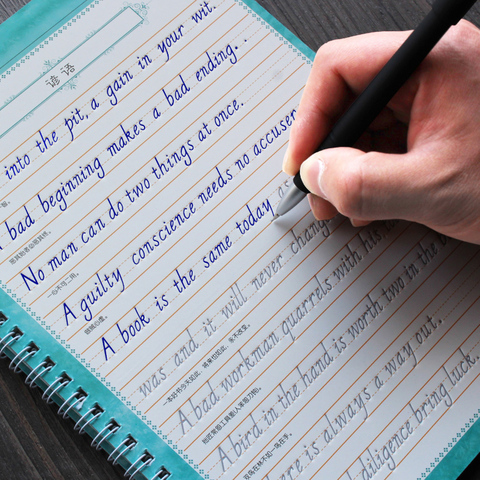 谚语
into the pit, a gain in your wit.
bad beginning makes a bad ending..
No man can do two things at once.
一心不可二用。
A guilty conscience needs no accuser
做贼心虚。
A book is the same today as
was and it will never chang
本好书今天如此，将来也如此，永不改变。
A bad workman quarrels with his
A bird in the hand is worth two in the
here is always a way out.
diligence bring luck.